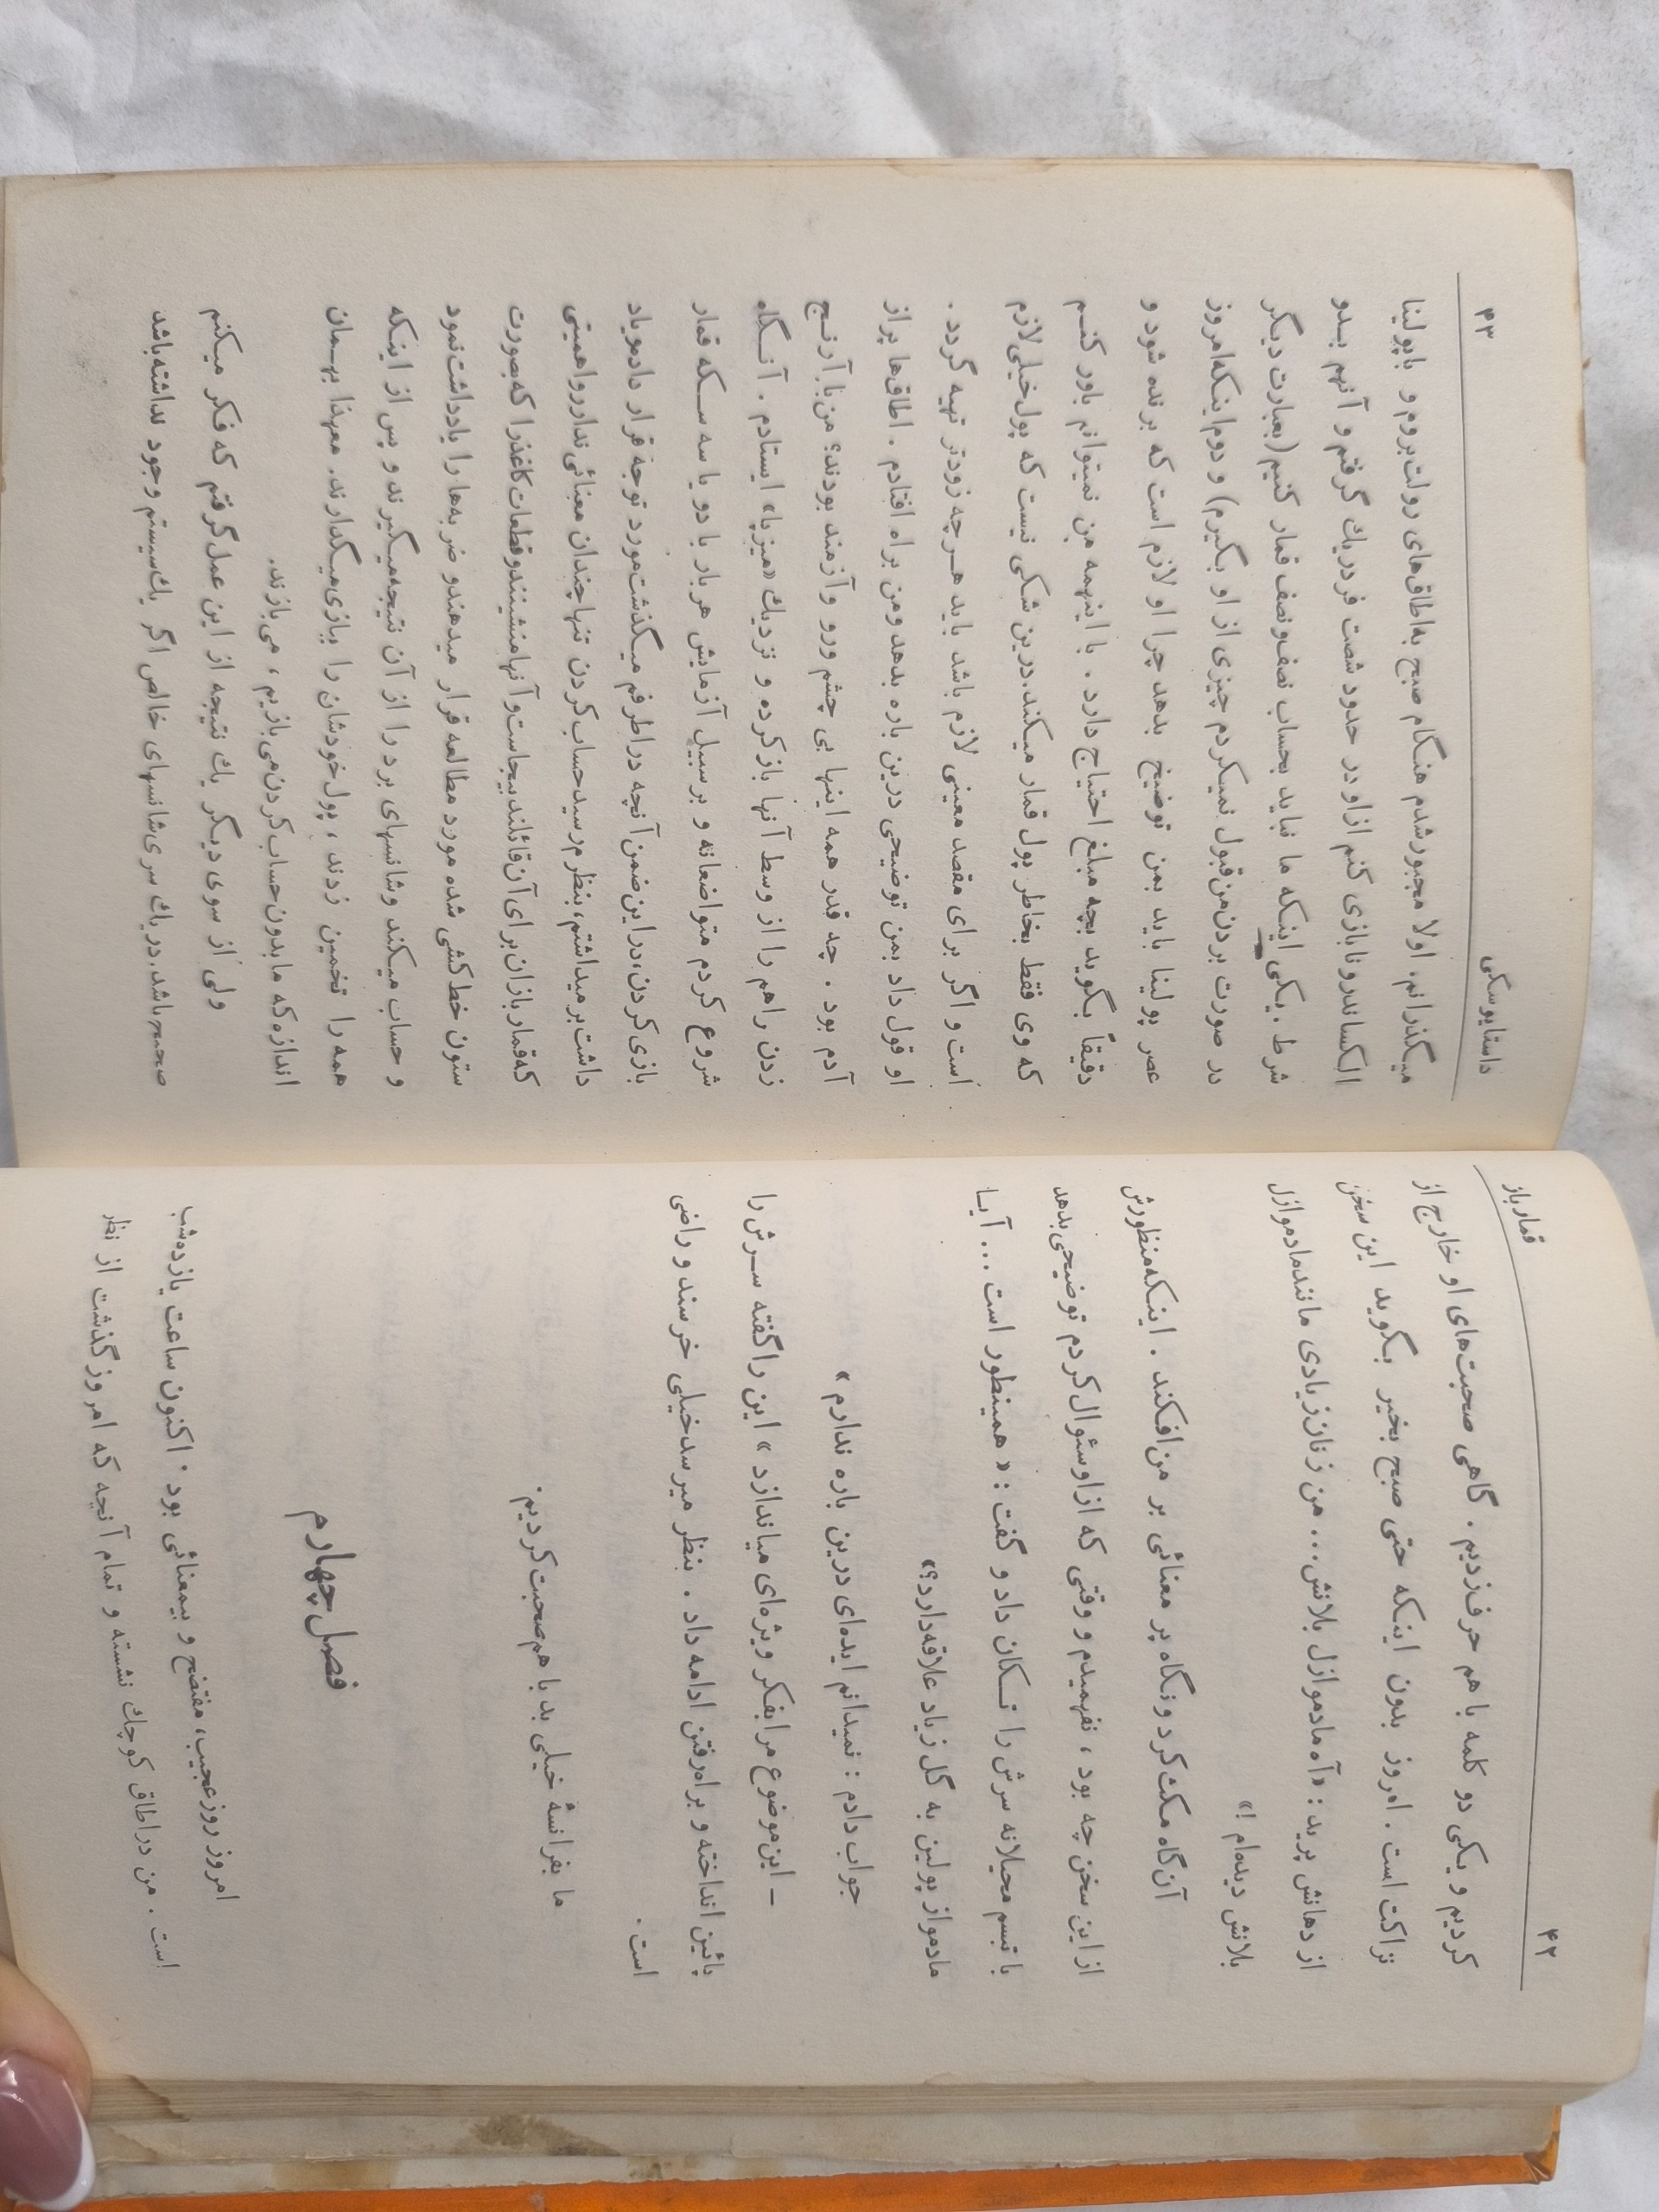 ۴۲
قمارباز
کردیم و یکی دو کلمه با هم حرف‌زدیم . گاهی صحبت‌های او خارج از
نزاکت است . امروز بدون اینکه حتی صبح بخیر بگوید این سخن
از دهانش پرید : «آه مادموازل بلانش... من زنان زیادی مانند مادموازل
بلانش دیده‌ام !»
آن‌گاه مکث کرد و نگاه پر معنائی بر من‌افکند . اینکه‌منظورش
از این سخن چه بود ، نفهمیدم و وقتی که ازاوسئوال کردم توضیحی بدهد
با تبسم محیلانه سرش را تکان داد و گفت : «همینطور است ... آیا
مادمواز پولین به گل زیاد علاقه‌دارد؟»
جواب دادم : نمیدانم ایده‌ای درین باره ندارم»
ـ این‌موضوع مرا بفکر ویژه‌ای میاندازد» این را گفته سرش را
پائین انداخته و براه‌رفتن ادامه داد . بنظر میرسد خیلی خرسند و راضی
است .
ما بفرانسهٔ خیلی بد با هم‌صحبت کردیم.
فصل چهارم
امروز روزعجیب، مفتضح و بیمعنائی بود . اکنون ساعت یازده‌شب
است . من دراطاق کوچك نشسته و تمام آنچه که امروز گذشت از نظر
داستایوسکی
۴۳
میگذرانم. اولا مجبورشدم هنگام صبح به‌اطاق‌های رولت‌بروم و باپولینا
الکساندرونا بازی کنم ازاو در حدود شصت فردریك گرفتم و آنهم بدو
شرط . یکی اینکه ما نباید بحساب نصف‌ونصف قمار کنیم(بعبارت دیگر
در صورت بردن‌من‌قبول نمیکردم چیزی از او بگیرم) و دوم‌اینکه‌امروز
عصر پولینا باید بمن توضیح بدهد چرا او لازم است که برنده شود و
دقیقاً بگوید بچه مبلغ احتیاج دارد . با اینهمه من نمیتوانم باور کنم
که وی فقط بخاطر پول قمار میکند.درین شکی نیست که پول‌خیلی‌لازم
است و اگر برای مقصد معینی لازم باشد باید هرچه زودتر تهیه گردد .
او قول داد بمن توضیحی درین باره بدهد ومن براه افتادم . اطاق‌ها پراز
آدم بود . چه قدر همه اینها بی چشم ورو وآزمند بودند؟ من‌با آرنج
زدن راهم را از وسط آنها باز کرده و نزدیك «میزپا» ایستادم . آنگاه
شروع کردم متواضعانه و برسبیل آزمایش هربار با دو یا سه سکه قمار
بازی کردن،دراین ضمن‌آنچه دراطرفم میگذشت‌مورد توجه‌قرار دادم‌ویاد
داشت‌برمیداشتم،بنظرم‌رسیدحساب‌کردن تنهاچندان معنائی نداردواهمیتی
که‌قماربازان‌برای‌آن‌قائلندبیجاست‌وآنهامنشینندوقطعات‌کاغذرا که‌بصورت
ستون خط‌کشی شده مورد مطالعه قرار میدهندو ضربه‌ها را یادداشت‌نمود
و حساب میکنند وشانسهای برد را از آن نتیجه‌میگیرند و پس از اینکه
همه را تخمین زدند ، پول‌خودشان را ببازی‌میگذارند. معهذا بهمان
اندازه‌که ما بدون‌حساب‌کردن‌می‌بازیم ، می‌بازند.
ولی از سوی دیگر یك نتیجه از این عمل‌گرفتم که فکر میکنم
صحیح باشد.دریك سری‌شانسهای خالص اگر یك‌سیستم وجود نداشته‌باشد